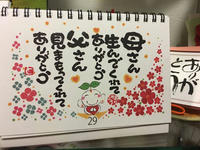 母さん
生んでくれて
ありがとう
父さん
見まもってくれて
ありがとう
29